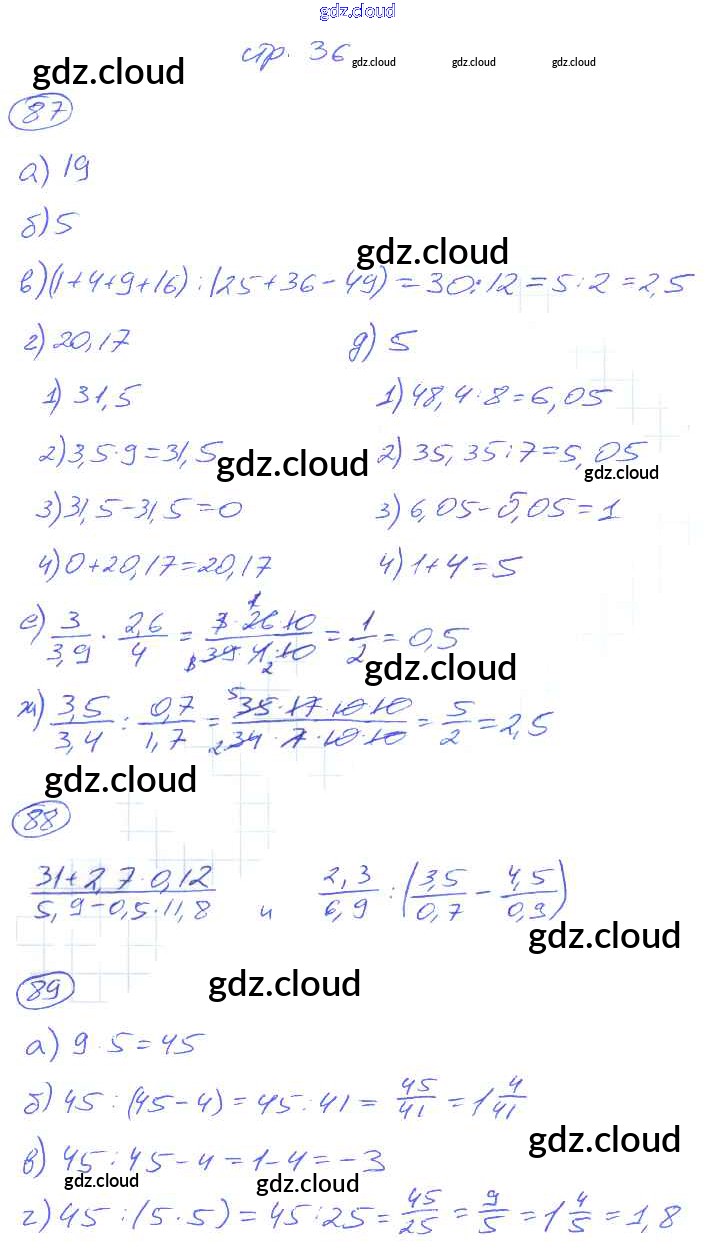 gdz.cloud
стр. 36
gdz.cloud gdz.cloud gdz.cloud gdz.cloud
87
а) 19
б) 5
gdz.cloud
в) (1+4+9+16) : (25+36-49) = 30:12 = 5:2 = 2,5
г) 20,17 д) 5
1) 31,5 1) 48,4 : 8 = 6,05
2) 3,5·9 = 31,5 gdz.cloud 2) 35,35 : 7 = 5,05
gdz.cloud
3) 31,5-31,5 = 0 3) 6,05 - 5,05 = 1
4) 0+20,17 = 20,17 4) 1+4 = 5
е) 3/3,9 · 2,6/4 = 3·26·10/39·4·10 = 1/2 = 0,5
gdz.cloud
ж) 3,5/3,4 : 0,7/1,7 = 35·17·10·10/34·7·10·10 = 5/2 = 2,5
gdz.cloud
88
31+2,7·0,12/5,9-0,5·11,8 и 2,3/6,9 : (3,5/0,7 - 4,5/0,9)
gdz.cloud
89 gdz.cloud
а) 9·5 = 45
б) 45 : (45-4) = 45 : 41 = 45/41 = 1 4/41
gdz.cloud
в) 45 : 45 - 4 = 1-4 = -3
gdz.cloud gdz.cloud
г) 45 : (5·5) = 45 : 25 = 45/25 = 9/5 = 1 4/5 = 1,8